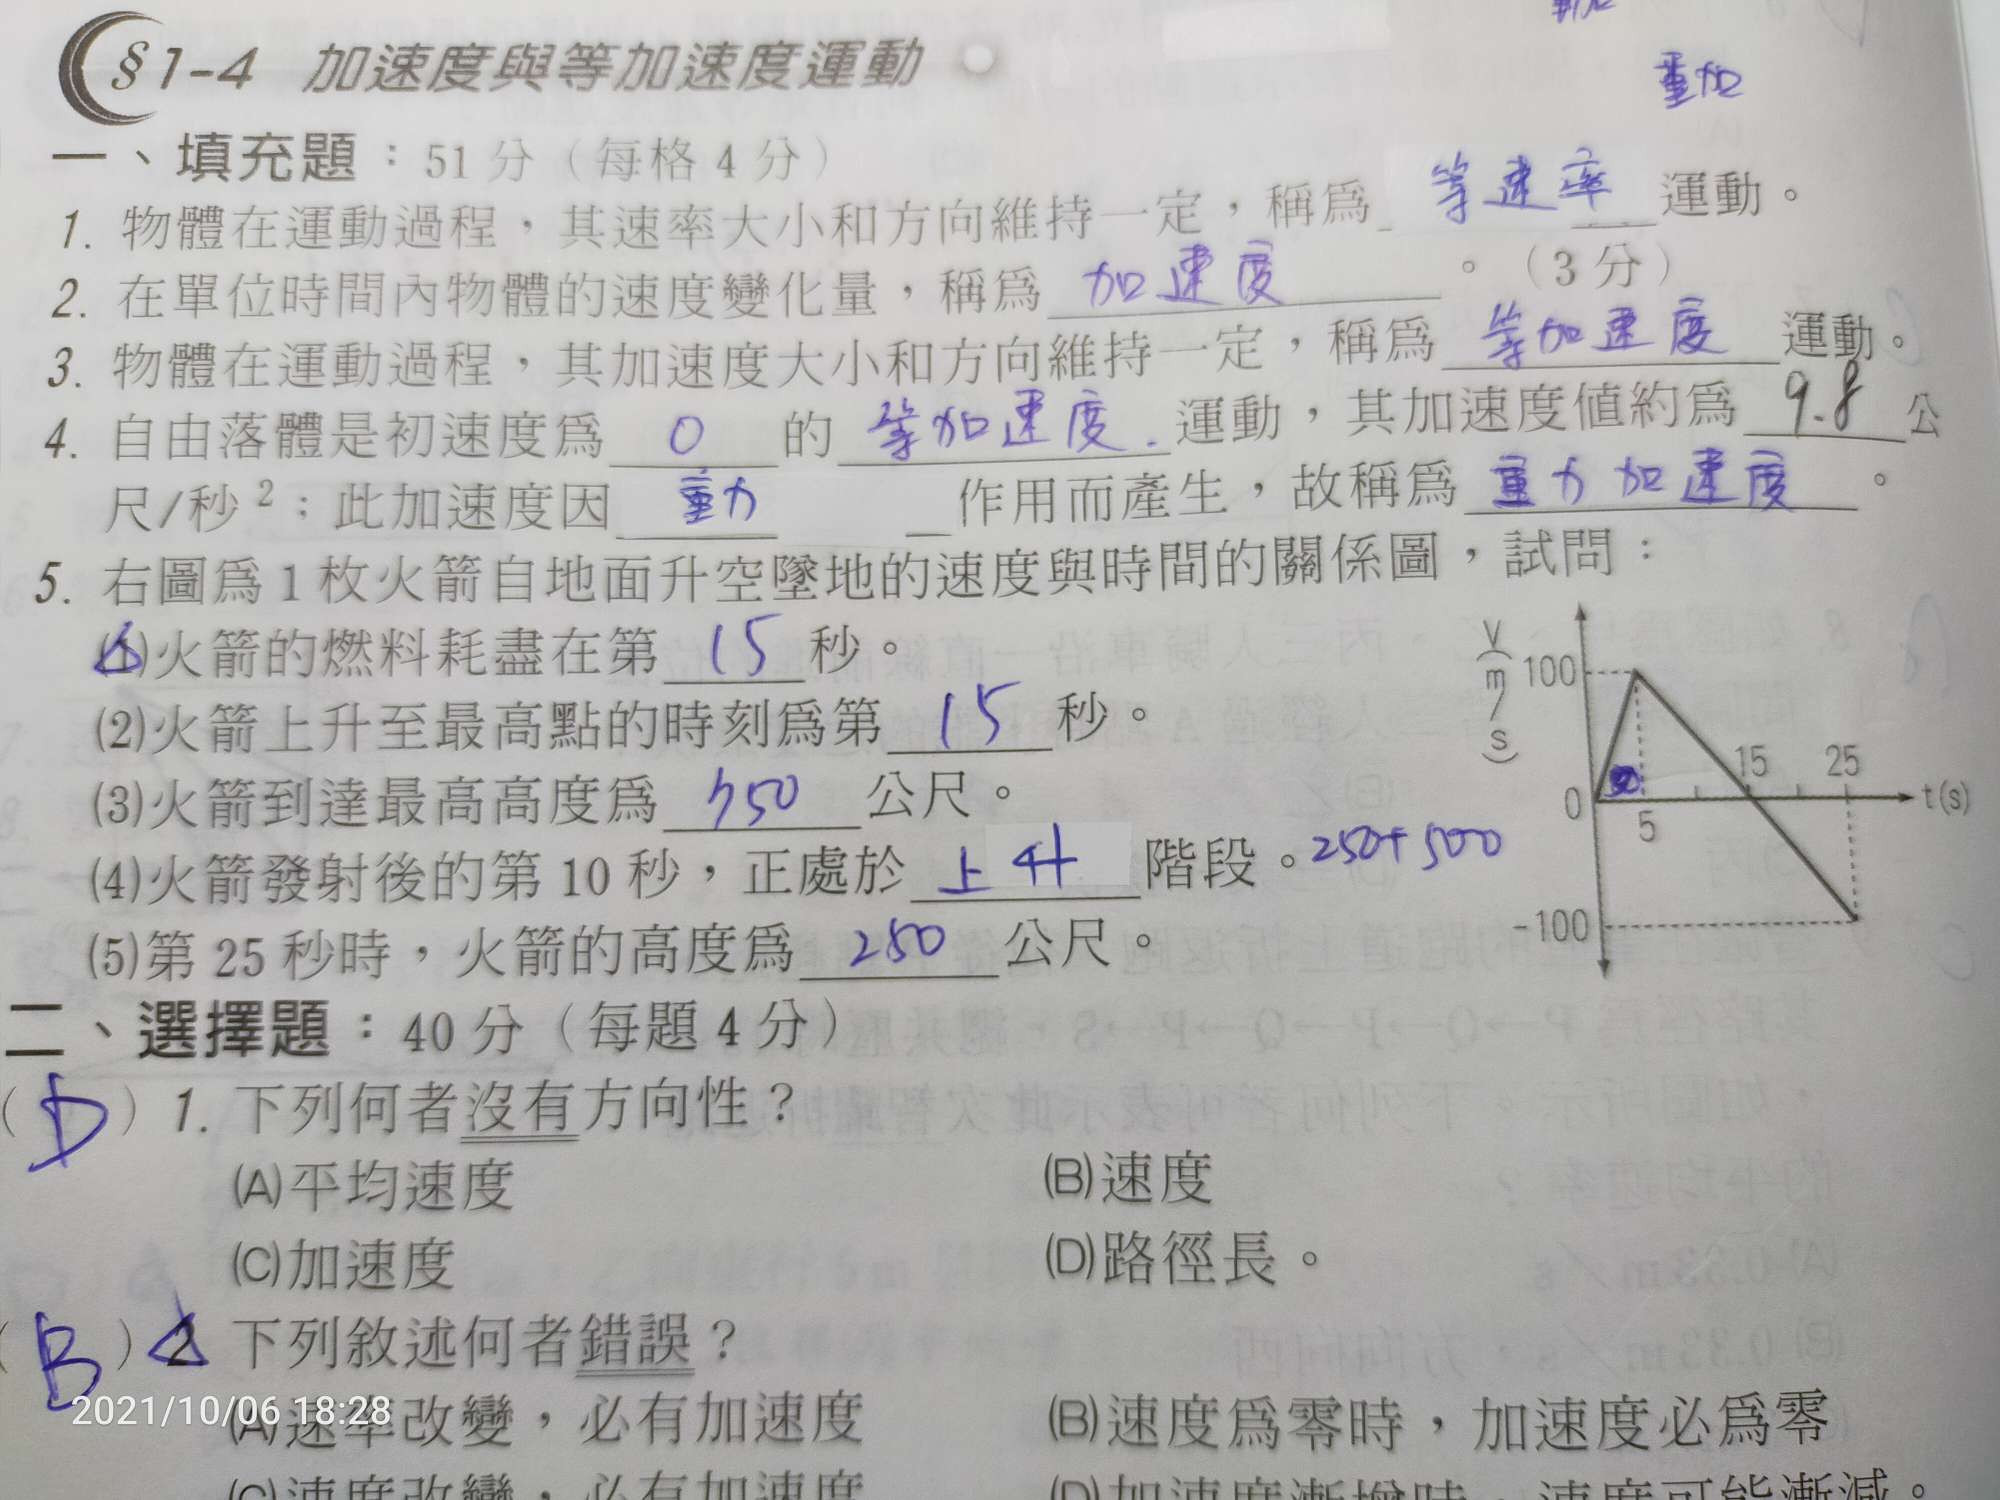 重加
§1-4 加速度與等加速度運動
一、填充題：51分（每格4分）
1. 物體在運動過程，其速率大小和方向維持一定，稱為 等速率 運動。
2. 在單位時間內物體的速度變化量，稱為 加速度 。（3分）
3. 物體在運動過程，其加速度大小和方向維持一定，稱為 等加速度 運動。
4. 自由落體是初速度為 0 的 等加速度 運動，其加速度值約為 9.8 公
尺/秒²；此加速度因 重力 作用而產生，故稱為 重力加速度 。
5. 右圖為1枚火箭自地面升空墜地的速度與時間的關係圖，試問：
(1)火箭的燃料耗盡在第 15 秒。
(2)火箭上升至最高點的時刻為第 15 秒。
(3)火箭到達最高高度為 750 公尺。
(4)火箭發射後的第10秒，正處於 上升 階段。250+500
(5)第25秒時，火箭的高度為 250 公尺。
V(m/s)
100
15 25
0 5 t(s)
-100
二、選擇題：40分（每題4分）
( D ) 1. 下列何者沒有方向性？
(A)平均速度 (B)速度
(C)加速度 (D)路徑長。
( B ) 2 下列敘述何者錯誤？
(A)速率改變，必有加速度 (B)速度為零時，加速度必為零
(C)速度改變，必有加速度 (D)加速度漸增時，速度可能漸減。
2021/10/06 18:28